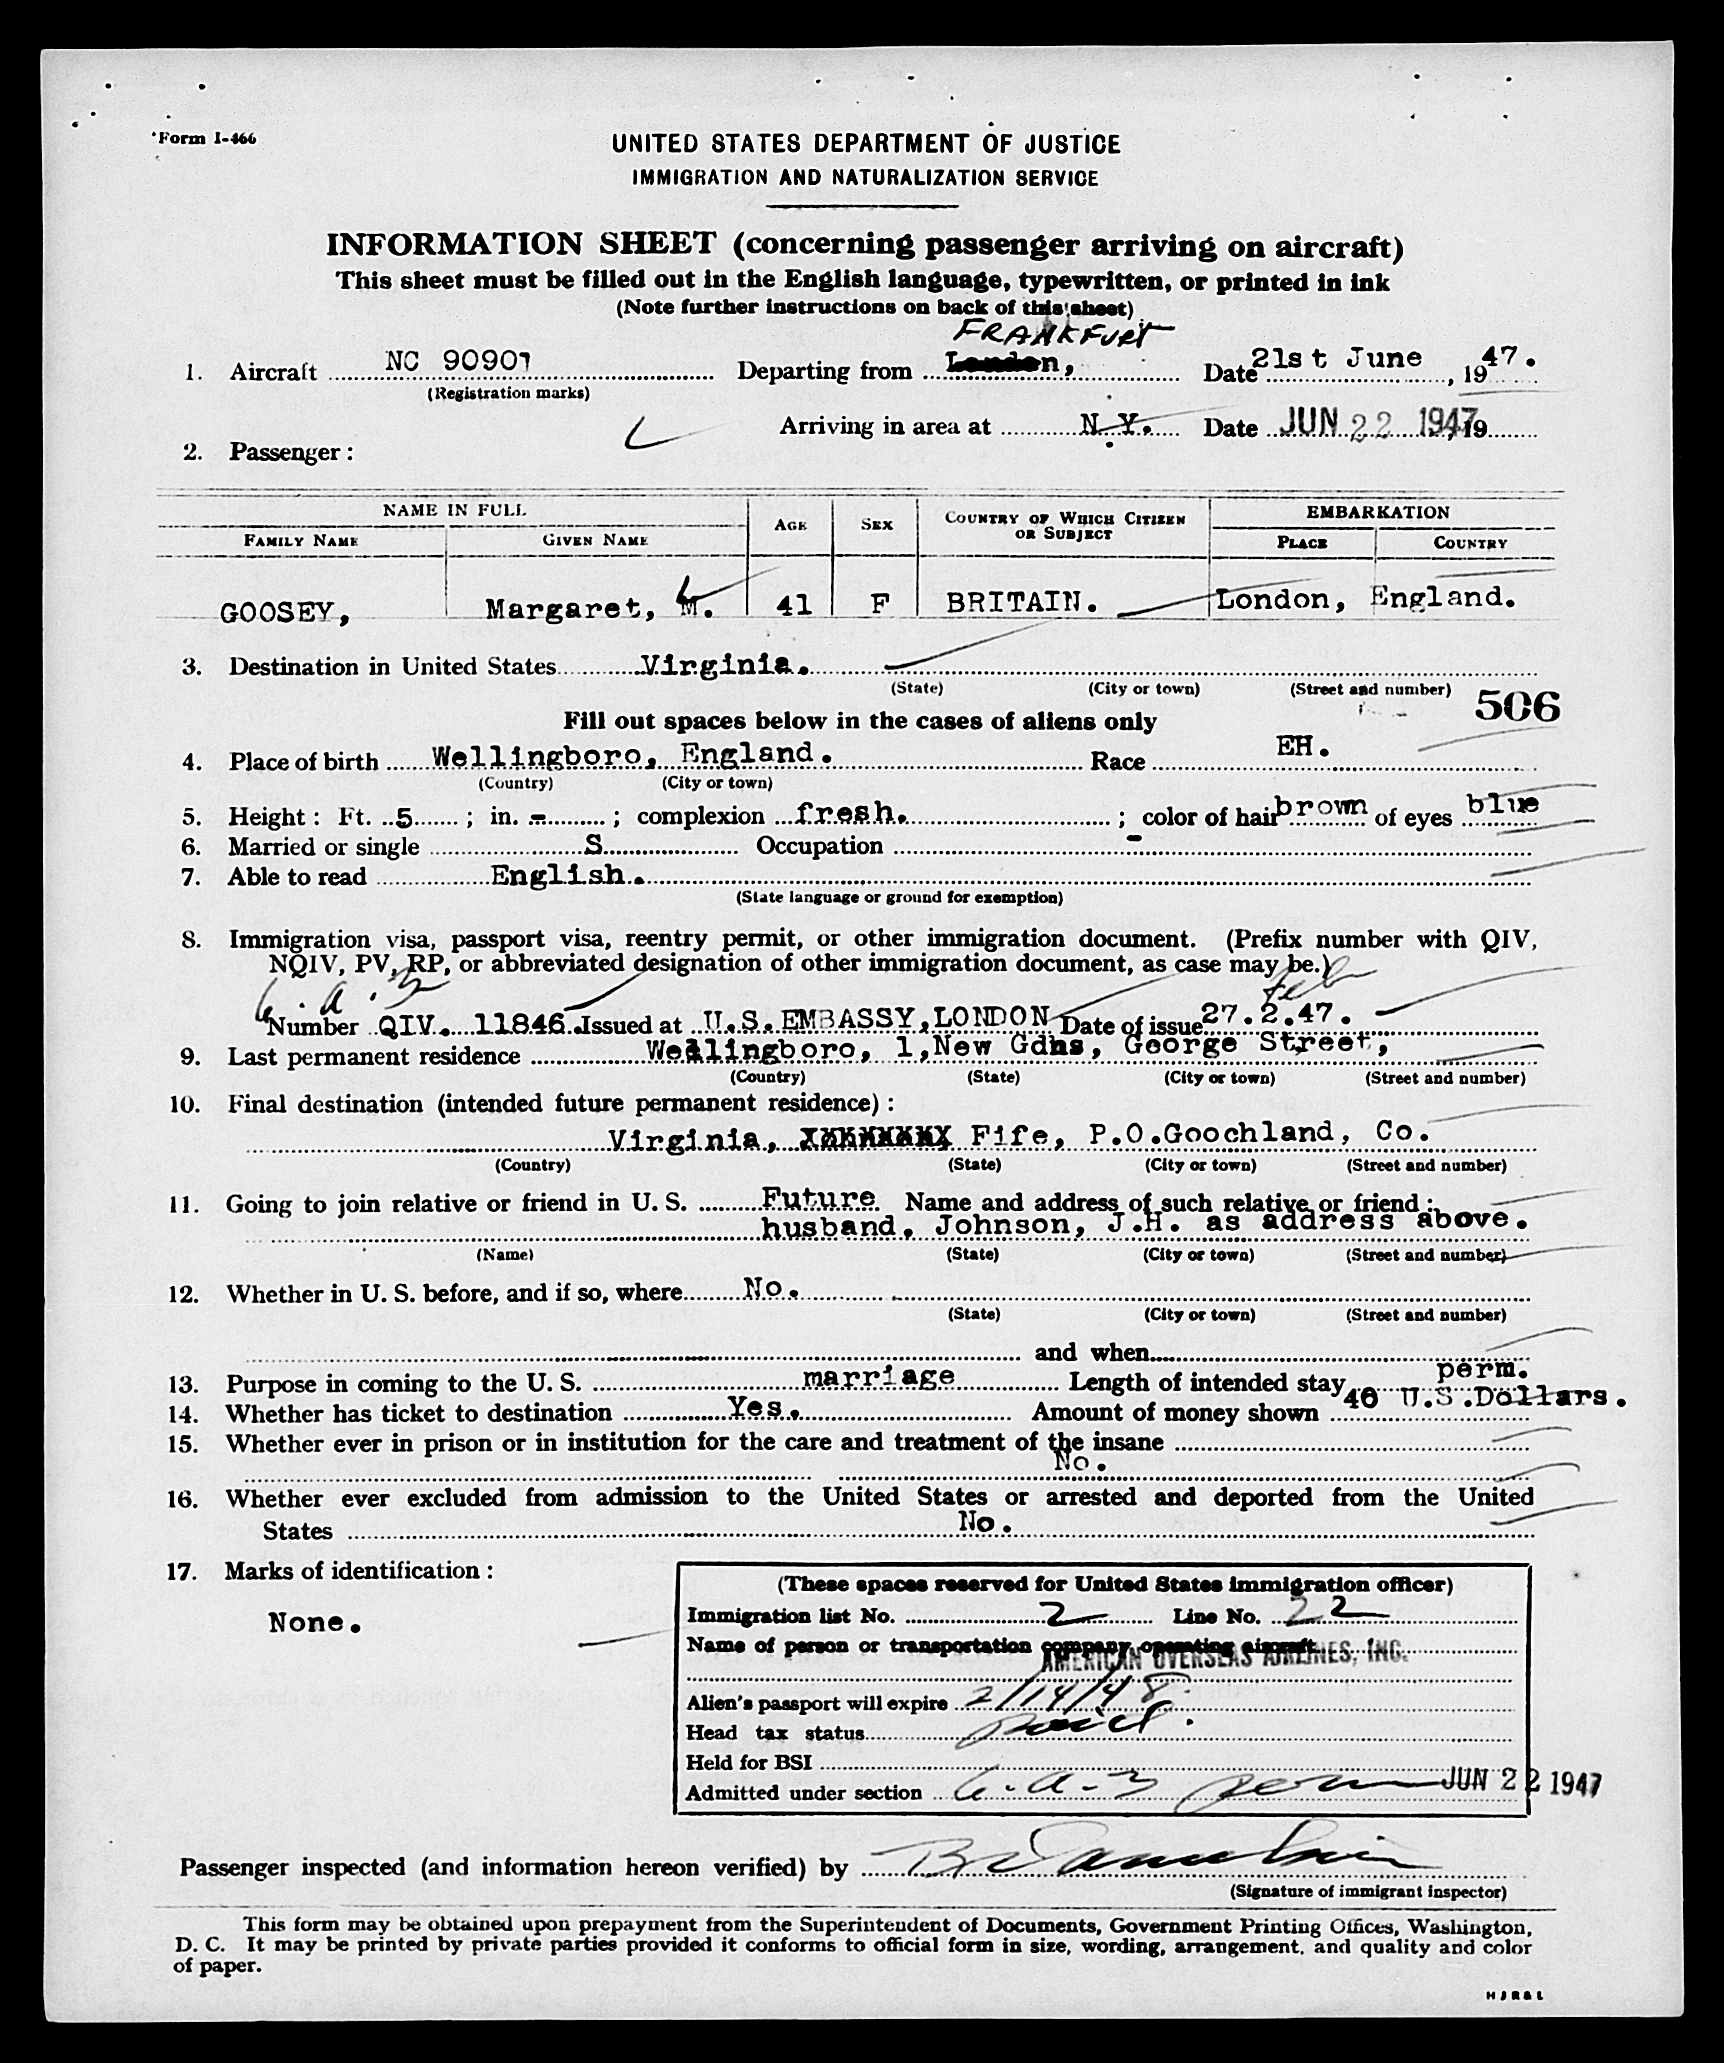 Form I-466
UNITED STATES DEPARTMENT OF JUSTICE
IMMIGRATION AND NATURALIZATION SERVICE
INFORMATION SHEET (concerning passenger arriving on aircraft)
This sheet must be filled out in the English language, typewritten, or printed in ink
(Note further instructions on back of this sheet)
FRANKFURT
1. Aircraft NC 90907 Departing from London, Date 21st June, 1947.
(Registration marks)
Arriving in area at N.Y. Date JUN 22 1947, 19
2. Passenger:
NAME IN FULL AGE SEX COUNTRY OF WHICH CITIZEN OR SUBJECT EMBARKATION
FAMILY NAME GIVEN NAME PLACE COUNTRY
GOOSEY, Margaret, M. 41 F BRITAIN. London, England.
3. Destination in United States Virginia.
(State) (City or town) (Street and number) 506
Fill out spaces below in the cases of aliens only
4. Place of birth Wellingboro, England. Race EH.
(Country) (City or town)
5. Height: Ft. 5; in. -; complexion fresh.; color of hair brown of eyes blue
6. Married or single S Occupation -
7. Able to read English.
(State language or ground for exemption)
8. Immigration visa, passport visa, reentry permit, or other immigration document. (Prefix number with QIV,
NQIV, PV, RP, or abbreviated designation of other immigration document, as case may be.)
6.a.3 Feb
Number QIV. 11846. Issued at U.S.EMBASSY,LONDON Date of issue 27.2.47.
9. Last permanent residence Wellingboro, 1,New Gdns, George Street,
(Country) (State) (City or town) (Street and number)
10. Final destination (intended future permanent residence):
Virginia, Fife, P.O.Goochland, Co.
(Country) (State) (City or town) (Street and number)
11. Going to join relative or friend in U. S. Future Name and address of such relative or friend:
husband, Johnson, J.H. as address above.
(Name) (State) (City or town) (Street and number)
12. Whether in U. S. before, and if so, where No.
(State) (City or town) (Street and number)
and when
13. Purpose in coming to the U. S. marriage Length of intended stay perm.
14. Whether has ticket to destination Yes. Amount of money shown 40 U.S.Dollars.
15. Whether ever in prison or in institution for the care and treatment of the insane
No.
16. Whether ever excluded from admission to the United States or arrested and deported from the United
States No.
17. Marks of identification:
None.
(These spaces reserved for United States immigration officer)
Immigration list No. 2 Line No. 22
Name of person or transportation company operating aircraft
AMERICAN OVERSEAS AIRLINES, INC.
Alien's passport will expire 2/14/48
Head tax status paid.
Held for BSI
Admitted under section 6.a-3 perm JUN 22 1947
Passenger inspected (and information hereon verified) by
(Signature of immigrant inspector)
This form may be obtained upon prepayment from the Superintendent of Documents, Government Printing Offices, Washington,
D. C. It may be printed by private parties provided it conforms to official form in size, wording, arrangement, and quality and color
of paper.
H J R & L